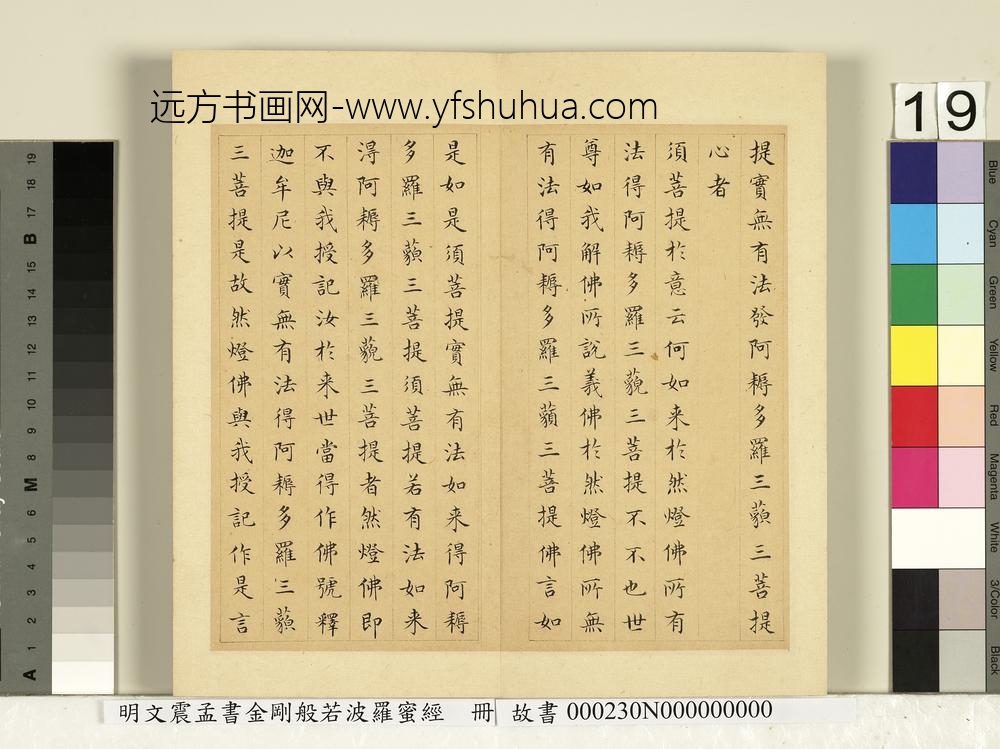 远方书画网-www.yfshuhua.com
提實無有法發阿耨多羅三藐三菩提
心者
須菩提於意云何如来於然燈佛所有
法得阿耨多羅三藐三菩提不不也世
尊如我解佛所說義佛於然燈佛所無
有法得阿耨多羅三藐三菩提佛言如
是如是須菩提實無有法如来得阿耨
多羅三藐三菩提須菩提若有法如来
得阿耨多羅三藐三菩提者然燈佛即
不與我授記汝於来世當得作佛號釋
迦牟尼以實無有法得阿耨多羅三藐
三菩提是故然燈佛與我授記作是言
明文震孟書金剛般若波羅蜜經 冊 故書 000230N000000000
19
Blue
Cyan
Green
Yellow
Red
Magenta
White
3/Color
Black
A 1 2 3 4 5 6 M 8 9 10 11 12 13 14 15 B 17 18 19